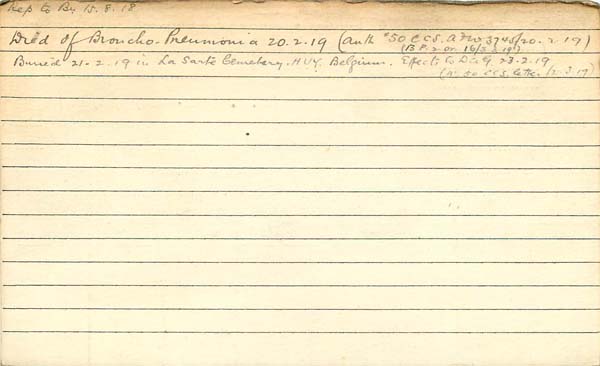 Rep to By 15.8.18
Died of Broncho-Pneumonia 20.2.19 (Auth 50 CCS. A3W3745/20.2.19)
(B.P. 2 or 16/3
Buried 21-2-19 in La Sarte Cemetery. HUY. Belgium. Effects to DAG. 23-2-19
50 CCS. letter